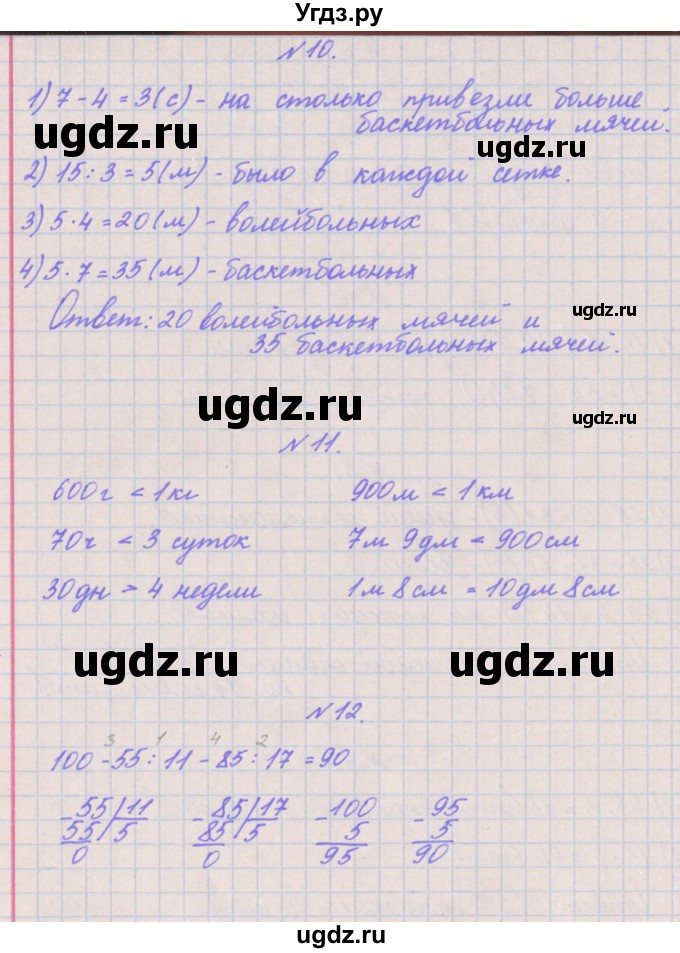 Угдз.ру
№10.
1) 7 - 4 = 3 (с) - на столько привезли больше
баскетбольных мячей.
ugdz.ru
ugdz.ru
2) 15 : 3 = 5 (м) - было в каждой сетке.
3) 5 · 4 = 20 (м) - волейбольных
4) 5 · 7 = 35 (м) - баскетбольных
ugdz.ru
Ответ: 20 волейбольных мячей и
35 баскетбольных мячей.
ugdz.ru
ugdz.ru
№11.
600 г < 1 кг 900 м < 1 км
70 ч < 3 суток 7 м 9 дм < 900 см
30 дн > 4 недели 1 м 8 см = 10 дм 8 см
ugdz.ru
ugdz.ru
№12.
3 1 4 2
100 - 55 : 11 - 85 : 17 = 90
- 55 | 11 - 85 | 17 - 100 - 95
55 | 5 85 | 5 5 5
0 0 95 90
ugdz.ru